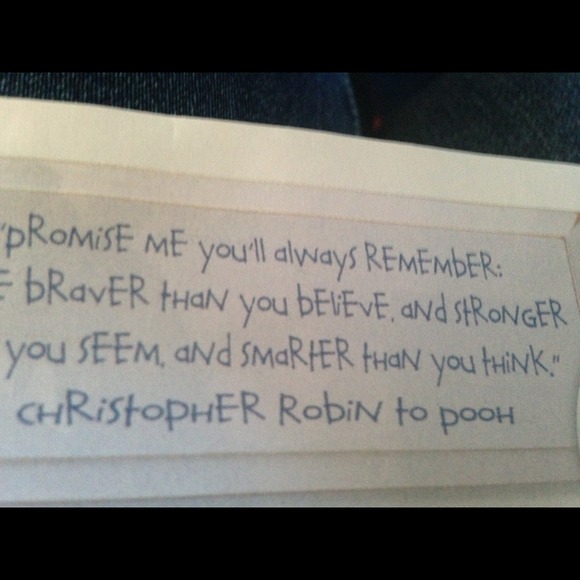 "PROMISE ME you'll always REMEMBER:
BRAVER THAN you BELIEVE, and STRONGER
you SEEM, and SMARTER THAN you THINK."
CHRISTOPHER ROBIN to POOH